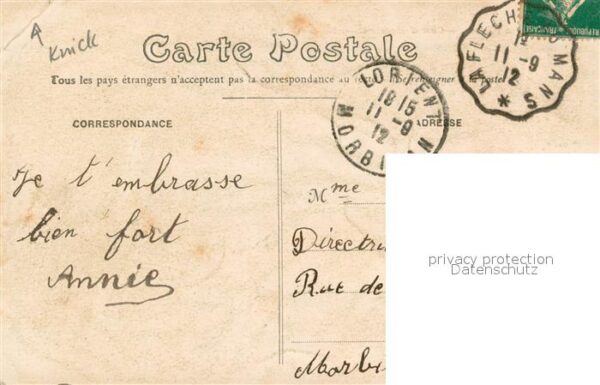 Knick
Carte Postale
Tous les pays étrangers n'acceptent pas la correspondance au recto (Se renseigner à la poste)
CORRESPONDANCE
ADRESSE
LA FLÈCHE
MANS
11 -9
12
LORIENT
18 15
11 -9
12
MORBIHAN
REPUBLIQUE FRANÇAISE
Je t'embrasse
bien fort
Annie
Mme
Directri
Rue de
Morbi
privacy protection
Datenschutz